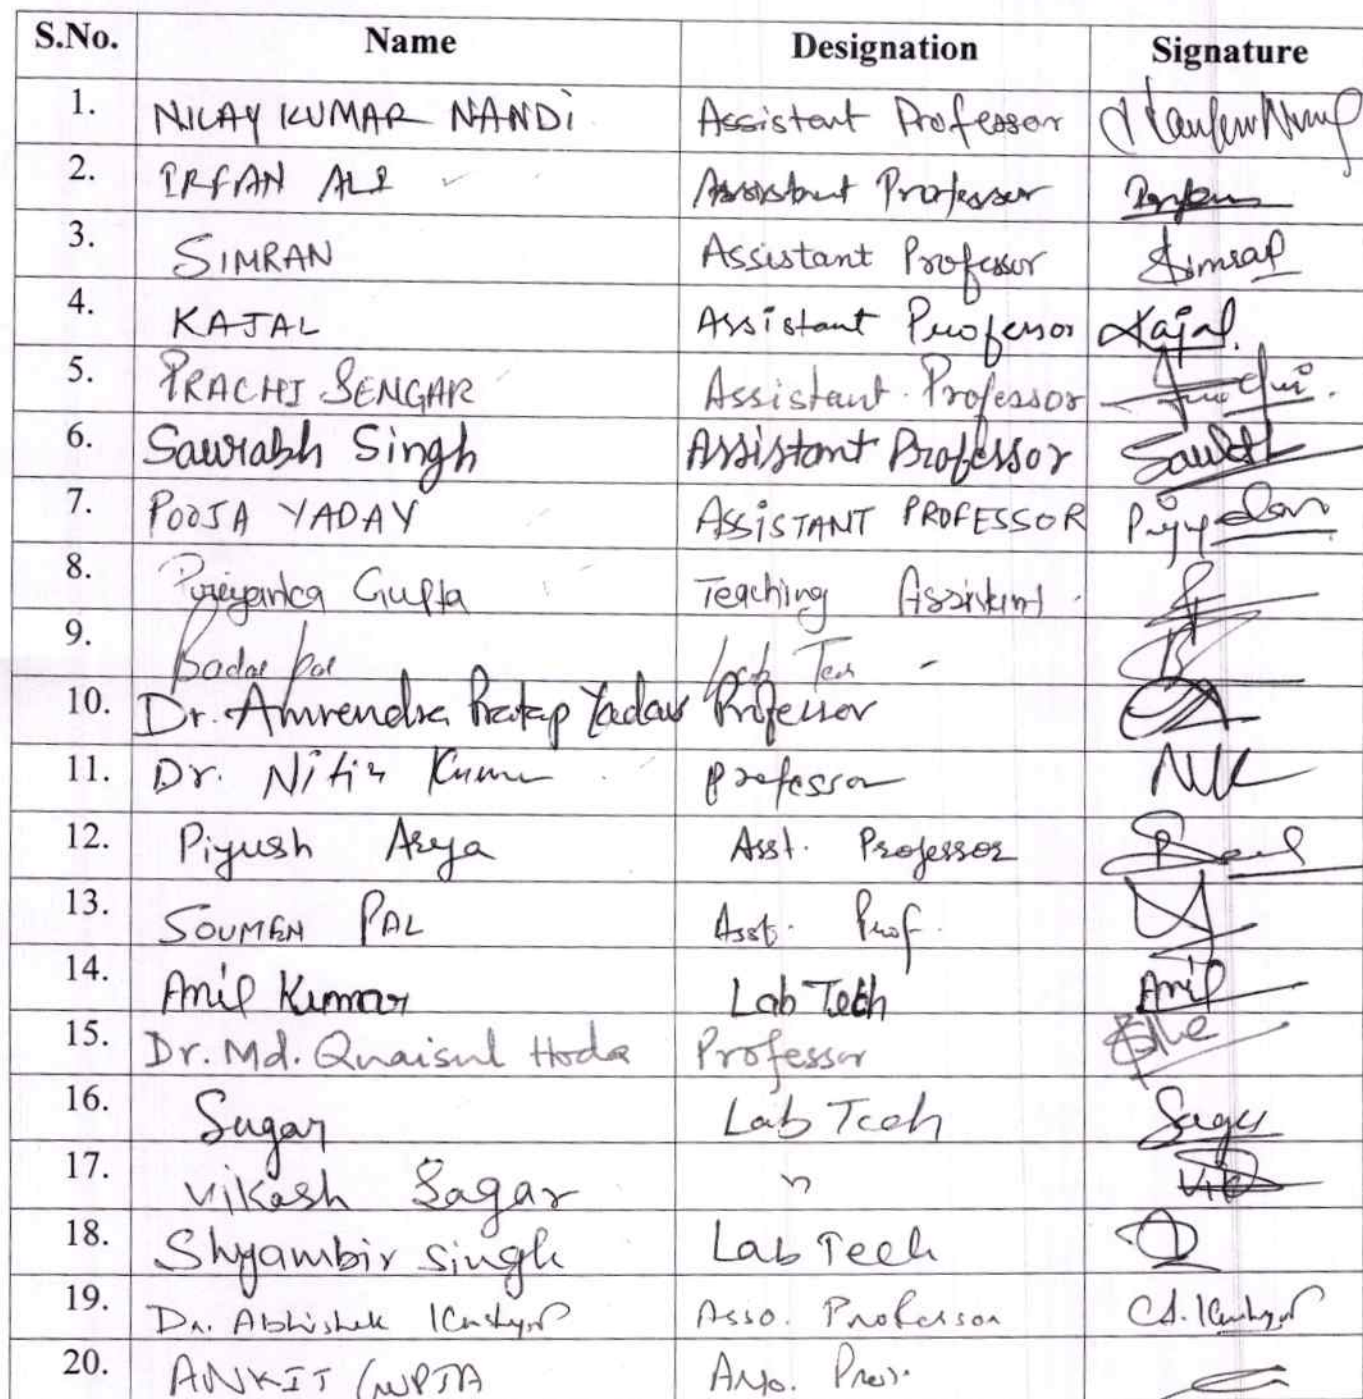 S.No. Name Designation Signature
1. NILAY KUMAR NANDI Assistant Professor
2. IRFAN ALI Assistant Professor
3. SIMRAN Assistant Professor Simran
4. KAJAL Assistant Professor Kajal.
5. PRACHI SENGAR Assistant Professor
6. Saurabh Singh Assistant Professor
7. POOJA YADAV ASSISTANT PROFESSOR
8. Priyanka Gupta Teaching Assistant
9. Badal Pal Lab
10. Dr. Amrendra Pratap Yadav Professor
11. Dr. Nitin Kumar Professor NK
12. Piyush Arya Asst. Professor
13. SOUMEN PAL Asst. Prof.
14. Anil Kumar Lab Tech Anil
15. Dr. Md. Quaisul Hoda Professor
16. Sugar Lab Tech
17. Vikash Sagar "
18. Shyambir Singh Lab Tech
19. Dr. Abhishek Kashyap Asso. Professor
20. ANKIT GUPTA Asso. Prof.